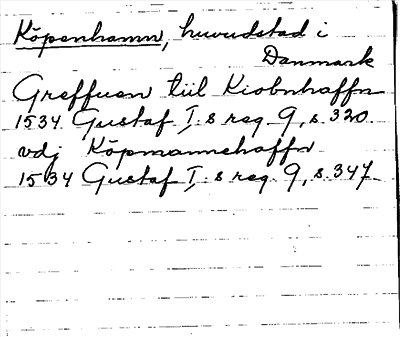 Köpenhamn, huvudstad i
Danmark
Greffuen tiil Kiobnhaffn
1534 Gustaf I:s reg. 9, s. 320.
vdj Köpmannehaffn
1534 Gustaf I:s reg. 9, s. 347